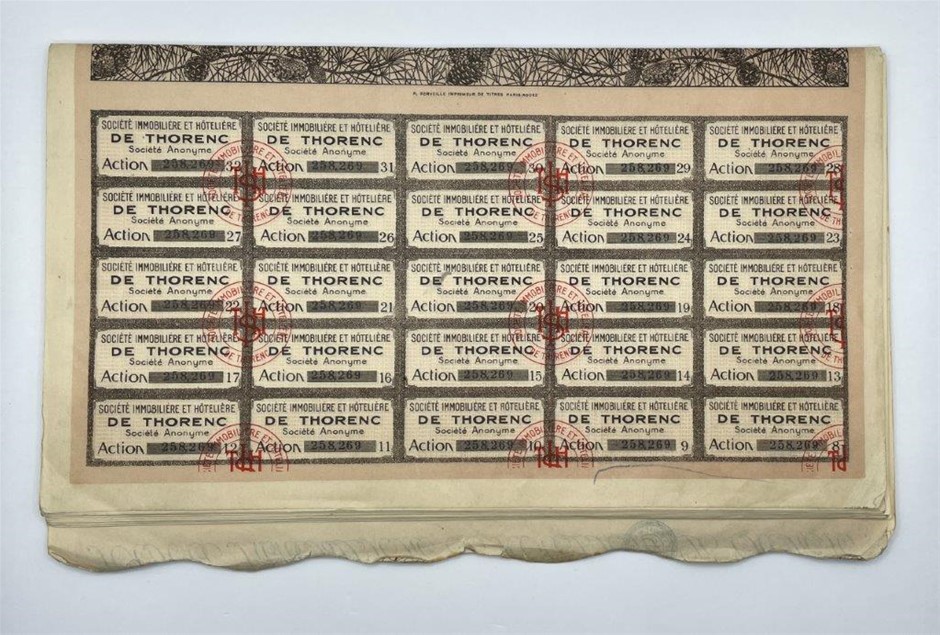 IMPRIMEUR DE TITRES PARIS-ROUEN
SOCIÉTÉ IMMOBILIÈRE ET HÔTELIÈRE
DE THORENC
Société Anonyme
Action 258,269 32
SOCIÉTÉ IMMOBILIÈRE ET HÔTELIÈRE
DE THORENC
Société Anonyme
Action 258,269 31
SOCIÉTÉ IMMOBILIÈRE ET HÔTELIÈRE
DE THORENC
Société Anonyme
Action 258,269 30
SOCIÉTÉ IMMOBILIÈRE ET HÔTELIÈRE
DE THORENC
Société Anonyme
Action 258,269 29
SOCIÉTÉ IMMOBILIÈRE ET HÔTELIÈRE
DE THORENC
Société Anonyme
Action 258,269 28
SOCIÉTÉ IMMOBILIÈRE ET HÔTELIÈRE
DE THORENC
Société Anonyme
Action 258,269 27
SOCIÉTÉ IMMOBILIÈRE ET HÔTELIÈRE
DE THORENC
Société Anonyme
Action 258,269 26
SOCIÉTÉ IMMOBILIÈRE ET HÔTELIÈRE
DE THORENC
Société Anonyme
Action 258,269 25
SOCIÉTÉ IMMOBILIÈRE ET HÔTELIÈRE
DE THORENC
Société Anonyme
Action 258,269 24
SOCIÉTÉ IMMOBILIÈRE ET HÔTELIÈRE
DE THORENC
Société Anonyme
Action 258,269 23
SOCIÉTÉ IMMOBILIÈRE ET HÔTELIÈRE
DE THORENC
Société Anonyme
Action 258,269 22
SOCIÉTÉ IMMOBILIÈRE ET HÔTELIÈRE
DE THORENC
Société Anonyme
Action 258,269 21
SOCIÉTÉ IMMOBILIÈRE ET HÔTELIÈRE
DE THORENC
Société Anonyme
Action 258,269 20
SOCIÉTÉ IMMOBILIÈRE ET HÔTELIÈRE
DE THORENC
Société Anonyme
Action 258,269 19
SOCIÉTÉ IMMOBILIÈRE ET HÔTELIÈRE
DE THORENC
Société Anonyme
Action 258,269 18
SOCIÉTÉ IMMOBILIÈRE ET HÔTELIÈRE
DE THORENC
Société Anonyme
Action 258,269 17
SOCIÉTÉ IMMOBILIÈRE ET HÔTELIÈRE
DE THORENC
Société Anonyme
Action 258,269 16
SOCIÉTÉ IMMOBILIÈRE ET HÔTELIÈRE
DE THORENC
Société Anonyme
Action 258,269 15
SOCIÉTÉ IMMOBILIÈRE ET HÔTELIÈRE
DE THORENC
Société Anonyme
Action 258,269 14
SOCIÉTÉ IMMOBILIÈRE ET HÔTELIÈRE
DE THORENC
Société Anonyme
Action 258,269 13
SOCIÉTÉ IMMOBILIÈRE ET HÔTELIÈRE
DE THORENC
Société Anonyme
Action 258,269 12
SOCIÉTÉ IMMOBILIÈRE ET HÔTELIÈRE
DE THORENC
Société Anonyme
Action 258,269 11
SOCIÉTÉ IMMOBILIÈRE ET HÔTELIÈRE
DE THORENC
Société Anonyme
Action 258,269 10
SOCIÉTÉ IMMOBILIÈRE ET HÔTELIÈRE
DE THORENC
Société Anonyme
Action 258,269 9
SOCIÉTÉ IMMOBILIÈRE ET HÔTELIÈRE
DE THORENC
Société Anonyme
Action 258,269 8